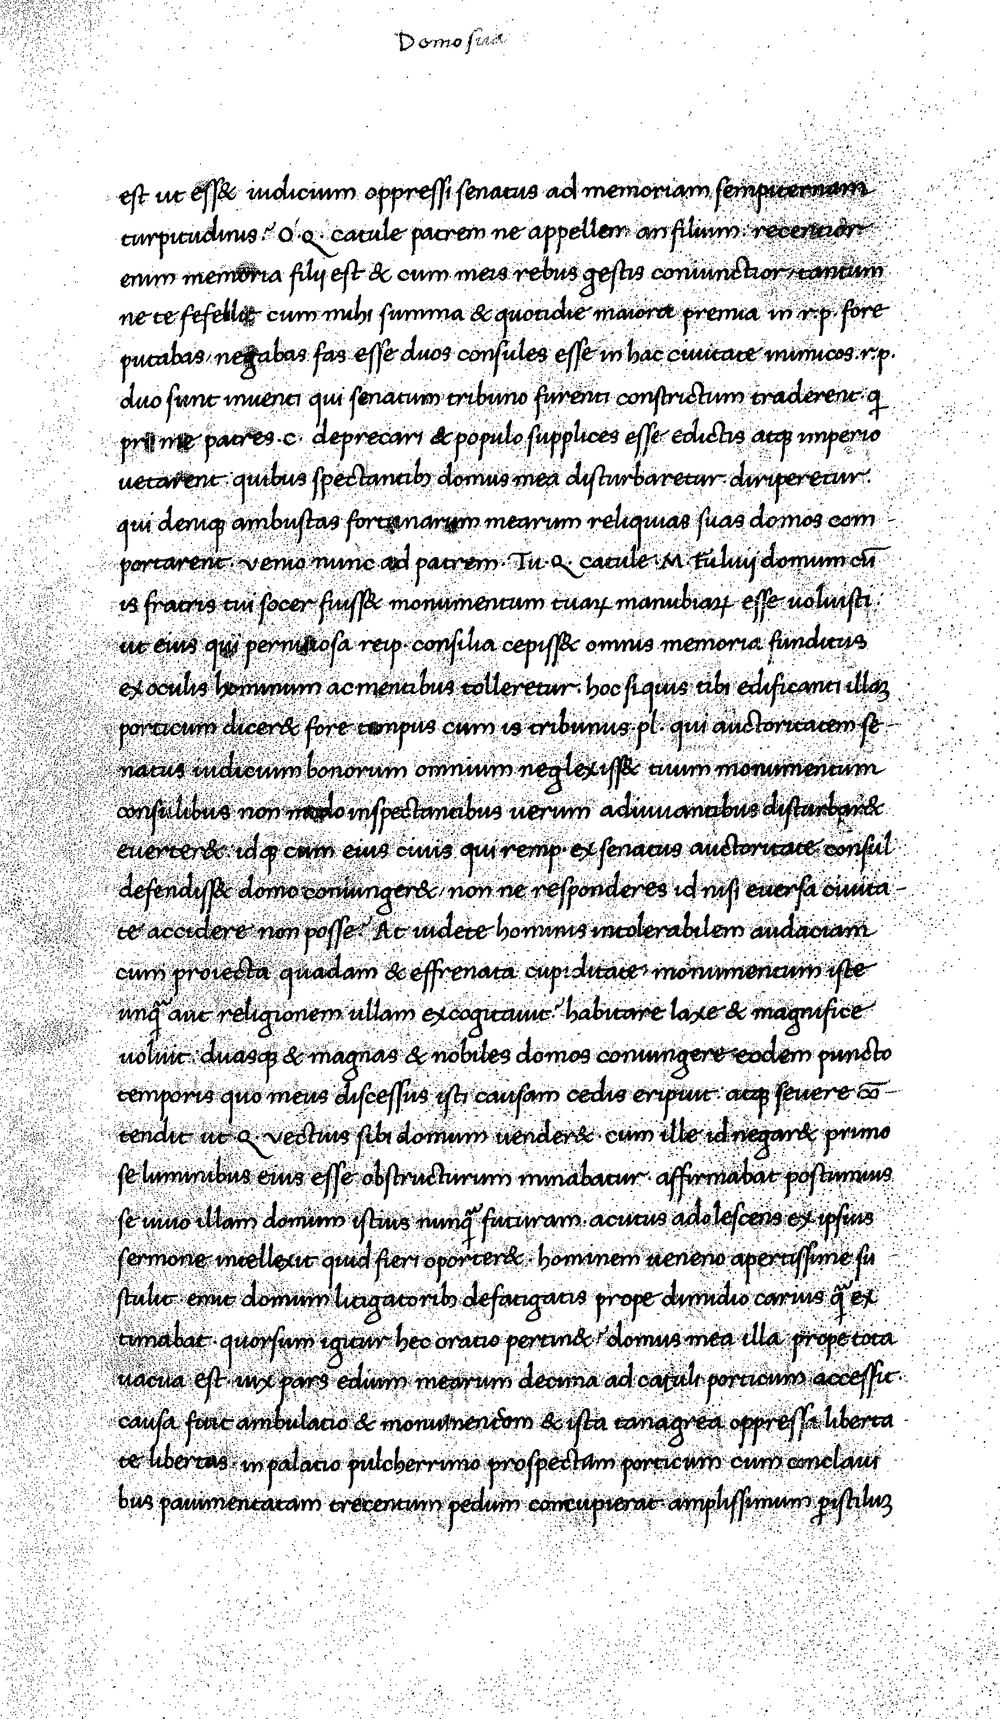 Domo sua
est ut ess& iudicium oppressi senatus ad memoriam sempiternam
turpitudinis? O Q. catule patrem ne appellem an filium. recentior
enim memoria filij est & cum meis rebus gestis coniunctior, tantum
ne te fefellit cum mihi summa & quotidie maiora premia in r.p. fore
putabas, negabas fas esse duos consules esse in hac ciuitate inimicos.r.p.
duo sunt inuenti qui senatum tribuno furenti constrictum traderent. q̄
pro me patres .c. deprecari & populo supplices esse edictis atqȝ imperio
uetarent. quibus spectantibȝ domus mea disturbaretur. diriperetur.
qui deniqȝ ambustas fortunarum mearum reliquias suas domos com
portarent. venio nunc ad patrem. Tu .Q. catule .M. Fuluij domum cū
is fratris tui socer fuiss& monumentum tuaꝝ manubiaꝝ esse uoluisti.
ut eius qui perniciosa reip. consilia cepiss& omnis memoria funditus
ex oculis hominum ac mentibus tolleretur. hoc si quis tibi edificanti illaȝ
porticum dicer& fore tempus cum is tribunus .pl. qui auctoritatem se-
natus iudicium bonorum omnium neglexiss& tuum monumentum
consulibus non modo inspectantibus uerum adiuuantibus disturbar&
euerter& idqȝ cum eius ciuis qui remp. ex senatus auctoritate consul
defendiss& domo coniunger&, non ne responderes id nisi euersa ciuita-
te accidere non posse? At uidete hominis intolerabilem audaciam
cum proiecta quadam & effrenata cupiditate, monumentum iste
unq̄ aut religionem ullam excogitauit? habitare laxe & magnifice
uoluit. duasqȝ & magnas & nobiles domos coniungere eodem puncto
temporis quo meus discessus isti causam cedis eripuit. atqȝ seuere cō-
tendit ut Q. vectius sibi domum uender&. cum ille id negar& primo
se luminibus eius esse obstructurum minabatur. affirmabat postumius
se uiuo illam domum istius nunq̄ futuram. acutus adolescens ex ipsius
sermone intellexit quid fieri oporter&. hominem ueneno apertissime su
stulit. emit domum litigatoribȝ defatigatis prope dimidio carius q̄ ex
timabat. quorsum igitur hec oratio pertin&? domus mea illa prope tota
uacua est. uix pars edium mearum decima ad catuli porticum accessit.
causa fuit ambulatio & monumentom & ista tanagrea oppressa liberta
te libertas. in palatio pulcherrimo prospectam porticum cum conclaui
bus pauimentatam trecentum pedum concupierat. amplissimum ꝑistiluȝ